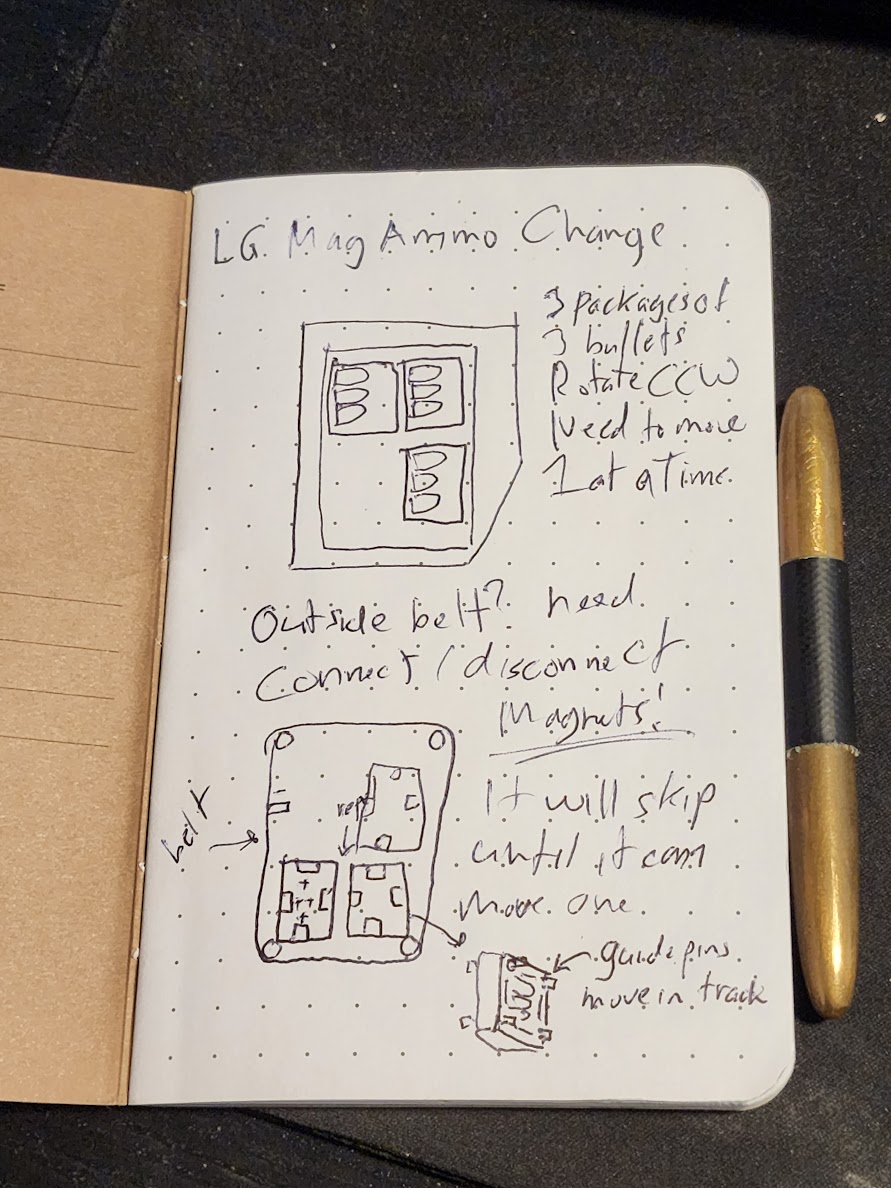 LG Mag Ammo Change
3 packages of
3 bullets
Rotate CCW
Need to move
1 at a time.
Outside belt? need
Connect / disconnect
Magnets!
belt
It will skip
until it can
move one.
guide pins
move in track